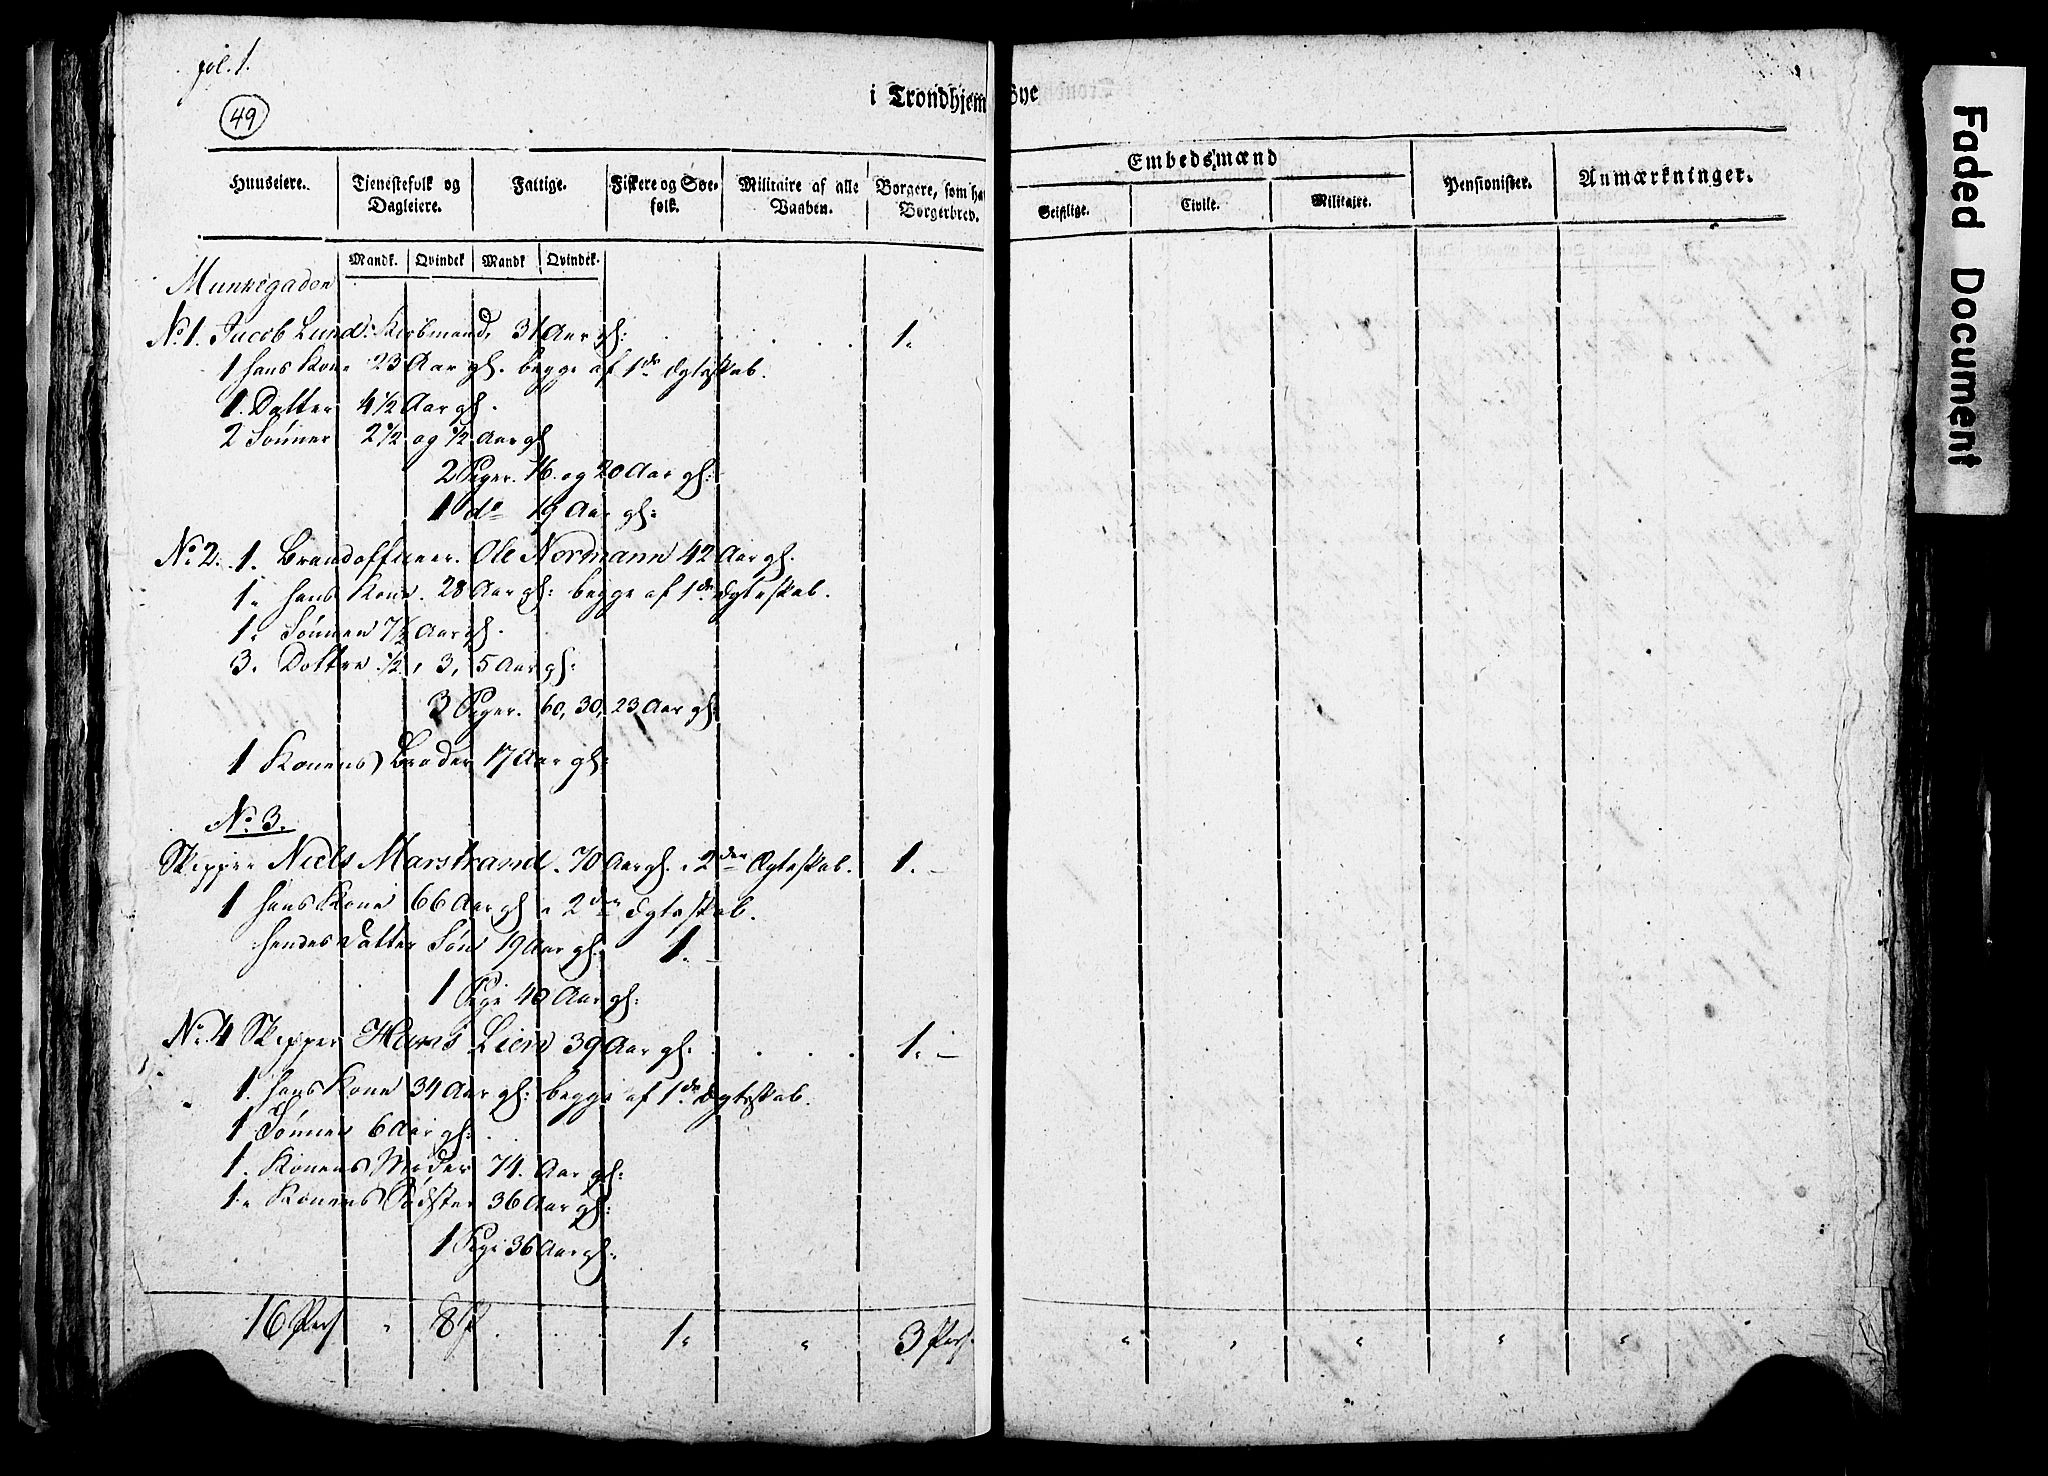 fol. 1.
49
i Trondhjem Bye
Huuseiere. Tjenestefolk og Dagleiere. Fattige. Fiskere og Søefolk. Militaire af alle Vaaben. Borgere, som ha Borgerbrev. Embedsmænd Pensionister. Anmærkninger.
Geistlige. Civile. Militaire.
Mandk. Qvindek Mandk Qvindek.
Munkegaden
No. 1. Jacob Lund. Kiøbmand, 31 Aar gl: 1.
1 hans Kone 23 Aar gl. begge af 1de Ægteskab.
1. Datter 4 1/2 Aar gl.
2 Sønner 2 1/2 og 1/2 Aar gl
2 Piger. 16. og 20 Aar gl:
1 do 19 Aar gl:
No. 2. 1. Brandofficier. Ole Normann 42 Aar gl.
1. hans Kone. 28 Aar gl: begge af 1de Ægteskab.
1. Sønnen 7 1/2 Aar gl.
3. Dottre 1/2, 3, 5 Aar gl:
3 Piger. 60, 30, 23 Aar gl:
1 Konens Broder 17 Aar gl:
No. 3.
Skipper Niels Marstrand. 70 Aar gl. 2den Ægteskab. 1.
1 hans Kone 66 Aar gl 2den Ægteskab.
hendes Datter Søn 19 Aar gl. 1.
1 Pige 40 Aar gl:
No. 4 Skipper Hans Lien 39 Aar gl. 1.
1. hans Kone 34 Aar gl: begge af 1de Ægteskab.
1 Sønnen 6 Aar gl:
1. Konens Moder 74. Aar gl:
1. Konens Sødster 36 Aar gl:
1 Pige 36 Aar gl.
16 Pers " 8 P. 1. " 3 Pers. " " " " "
Faded Document